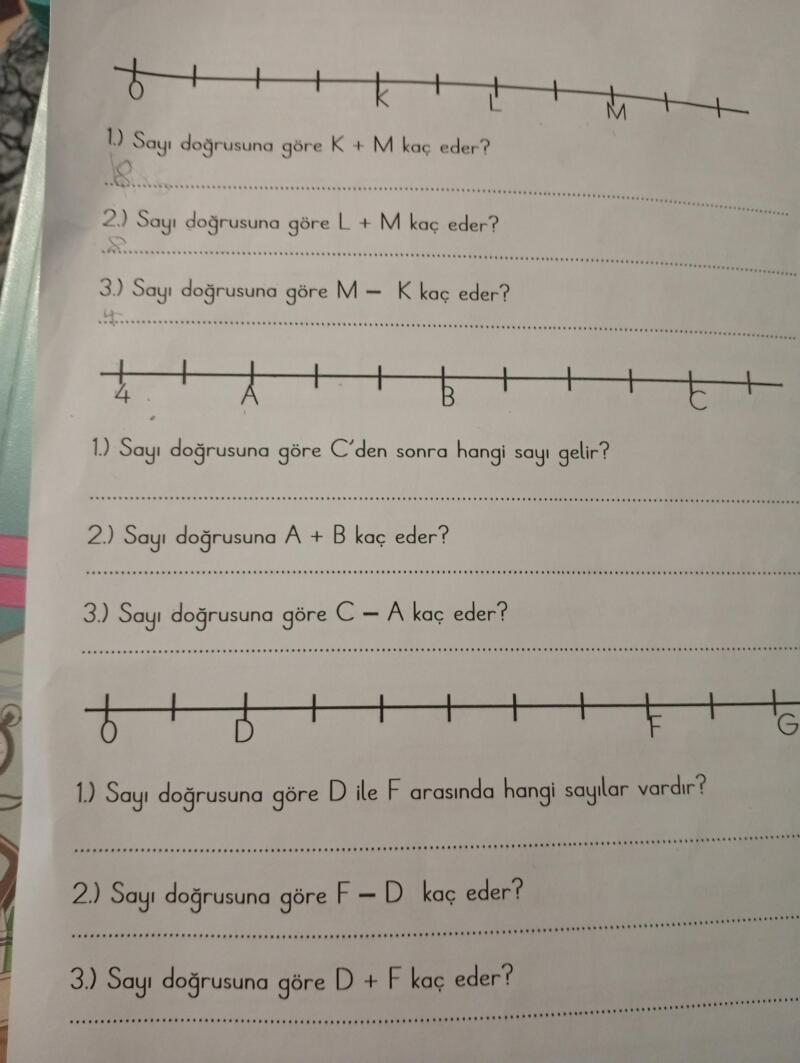 0 K L M
1.) Sayı doğrusuna göre K + M kaç eder?
2.) Sayı doğrusuna göre L + M kaç eder?
8
3.) Sayı doğrusuna göre M – K kaç eder?
4
4 A B C
1.) Sayı doğrusuna göre C'den sonra hangi sayı gelir?
2.) Sayı doğrusuna A + B kaç eder?
3.) Sayı doğrusuna göre C – A kaç eder?
0 D F G
1.) Sayı doğrusuna göre D ile F arasında hangi sayılar vardır?
2.) Sayı doğrusuna göre F – D kaç eder?
3.) Sayı doğrusuna göre D + F kaç eder?